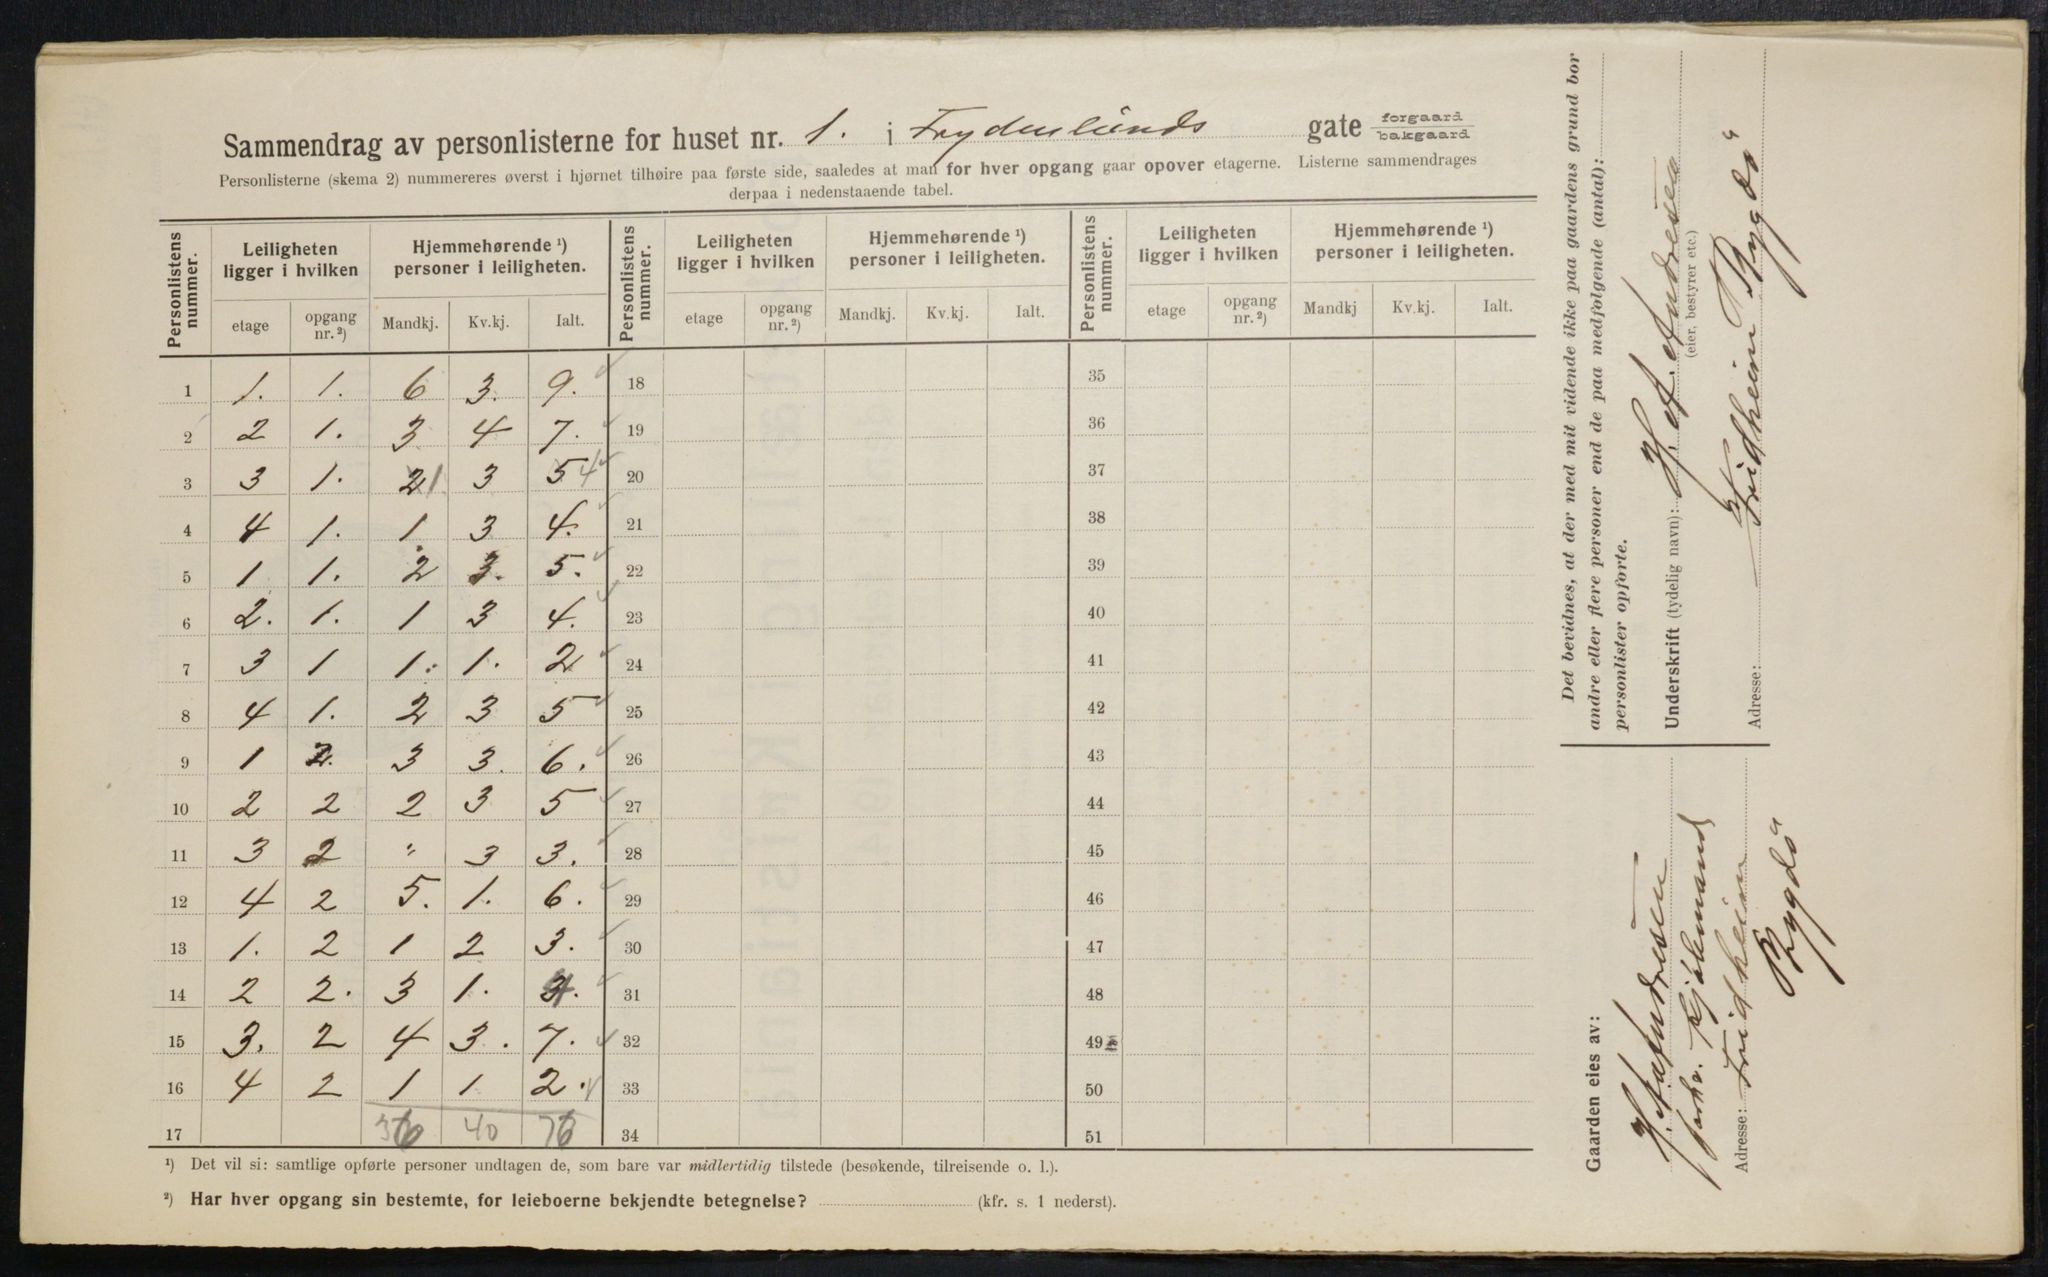 Sammendrag av personlisterne for huset nr. 1. i Frydenlunds gate forgaard bakgaard
Personlisterne (skema 2) nummereres øverst i hjørnet tilhøire paa første side, saaledes at man for hver opgang gaar opover etagerne. Listerne sammendrages
derpaa i nedenstaaende tabel.
Personlistens nummer. Leiligheten ligger i hvilken Hjemmehørende ¹) personer i leiligheten. Personlistens nummer. Leiligheten ligger i hvilken Hjemmehørende ¹) personer i leiligheten. Personlistens nummer. Leiligheten ligger i hvilken Hjemmehørende ¹) personer i leiligheten.
etage opgang nr. ²) Mandkj. Kv.kj. Ialt. etage opgang nr. ²) Mandkj. Kv.kj. Ialt. etage opgang nr. ²) Mandkj Kv.kj. Ialt.
1 1. 1. 6 3. 9. 18 35
2 2 1. 3 4 7. 19 36
3 3 1. 2 1 3 5 4 20 37
4 4 1. 1. 3 4. 21 38
5 1 1. 2 3. 5. 22 39
6 2. 1. 1 3 4. 23 40
7 3 1 1. 1. 2 24 41
8 4 1. 2 3 5 25 42
9 1 2. 3 3. 6. 26 43
10 2 2 2 3 5 27 44
11 3 2 " 3 3. 28 45
12 4 2 5. 1. 6. 29 46
13 1. 2 1 2 3. 30 47
14 2 2. 3 1. 4. 31 48
15 3. 2 4 3. 7. 32 49
16 4 2 1 1 2. 33 50
17 36 40 76 34 51
¹) Det vil si: samtlige opførte personer undtagen de, som bare var midlertidig tilstede (besøkende, tilreisende o. l.).
²) Har hver opgang sin bestemte, for leieboerne bekjendte betegnelse? (kfr. s. 1 nederst).
Det bevidnes, at der med mit vidende ikke paa gaardens grund bor
andre eller flere personer end de paa medfølgende (antal):
personlister opførte.
Underskrift (tydelig navn): H. A. Andresen
(eier, bestyrer etc.)
Adresse: Fridheim Bygdö
Gaarden eies av:
H. A. Andresen
forhv. kjöbmand
Adresse: Fridheim
Bygdö